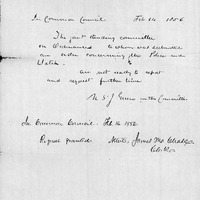 In Common Council Feb 14 1856
The joint standing committee
on Ordinances to whom was referred
an order concerning the Police and
Watch
are not ready to report
and request further time
N. S. J. Green for the Committee
In Common Council Feb 14 1856
Report granted. Attest,